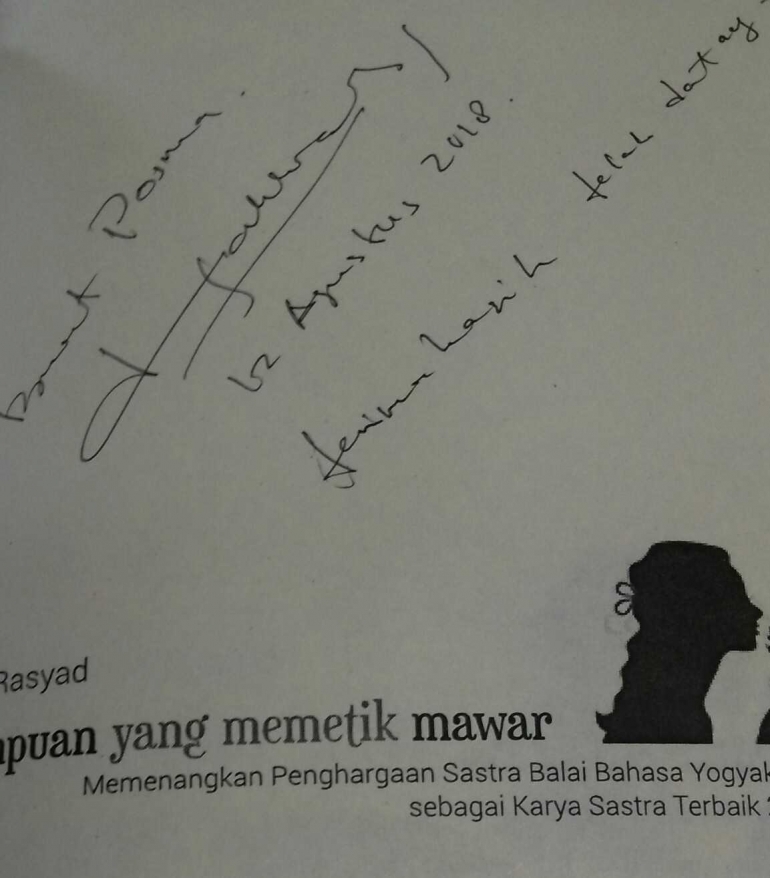 Buat Posma.
12 Agustus 2018.
terima kasih telah datang
Rasyad
puan yang memetik mawar
Memenangkan Penghargaan Sastra Balai Bahasa Yogyak
sebagai Karya Sastra Terbaik